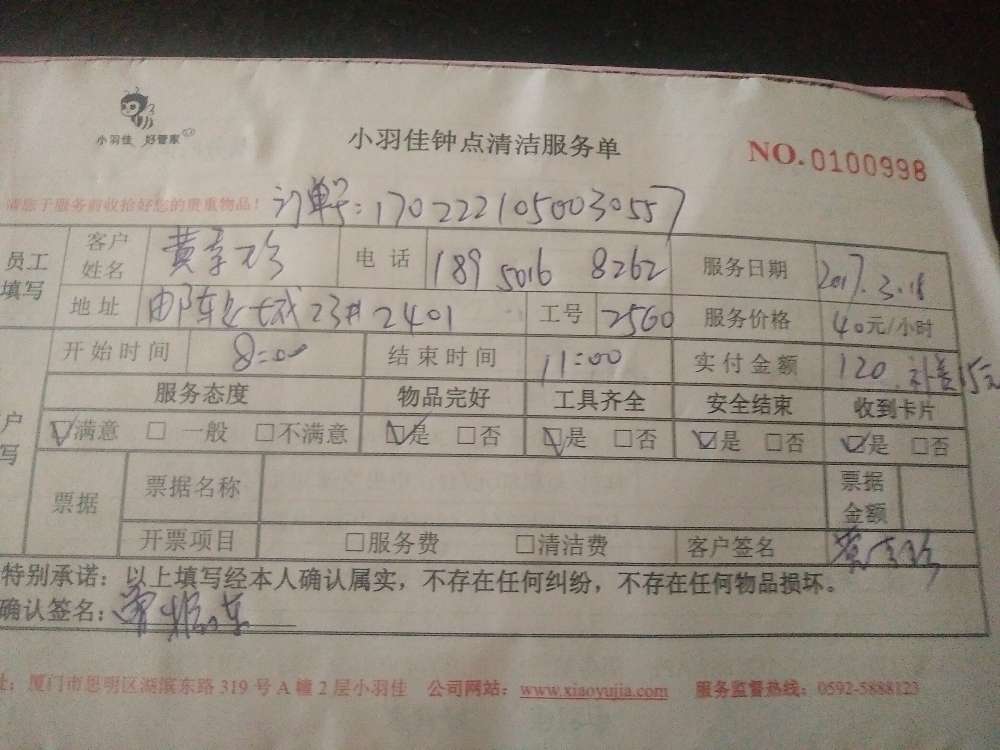 小羽佳 好管家
小羽佳钟点清洁服务单
NO.0100998
请您于服务前收拾好您的贵重物品！ 订单号：1702221050030557
员工填写 客户姓名 黄幸珍 电话 189 5016 8262 服务日期 2017.3.18
地址 23# 2401 工号 2560 服务价格 40元/小时
开始时间 8:00 结束时间 11:00 实付金额 120 补差15元
服务态度 物品完好 工具齐全 安全结束 收到卡片
户写 ☑满意 □一般 □不满意 ☑是 □否 ☑是 □否 ☑是 □否 ☑是 □否
票据 票据名称 票据金额
开票项目 □服务费 □清洁费 客户签名
特别承诺：以上填写经本人确认属实，不存在任何纠纷，不存在任何物品损坏。
确认签名：
址：厦门市思明区湖滨东路 319 号 A 幢 2 层小羽佳 公司网站：www.xiaoyujia.com 服务监督热线：0592-5888123